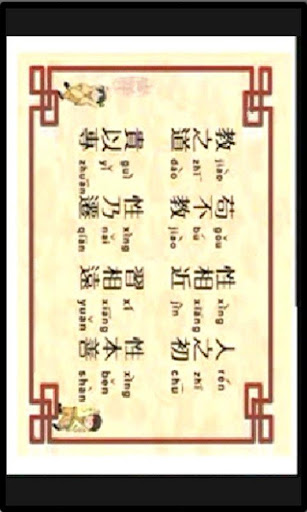 人之初
rén zhī chū
性本善
xìng běn shàn
性相近
xìng xiāng jìn
習相遠
xí xiāng yuǎn
苟不教
gǒu bú jiào
性乃遷
xìng nǎi qiān
教之道
jiào zhī dào
貴以專
guì yǐ zhuān